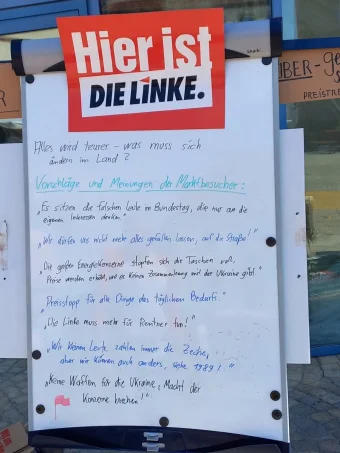 Hier ist
DIE LINKE.
ÜBER-ge
PREISTRE
R
Alles wird teurer – was muss sich
ändern im Land?
Vorschläge und Meinungen der Marktbesucher:
„Es sitzen die falschen Leute im Bundestag, die nur an die
eigenen Interessen denken“
„Wir dürfen uns nicht mehr alles gefallen lassen, auf die Straße!“
„Die großen Energiekonzerne stopfen sich die Taschen voll,
Preise werden erhöht, wo es keinen Zusammenhang mit der Ukraine gibt“
„Preisstopp für alle Dinge des täglichen Bedarfs.“
„Die Linke muss mehr für Rentner tun!“
„Wir kleinen Leute zahlen immer die Zeche,
aber wir können auch anders, siehe 1989!“
„Keine Waffen für die Ukraine, Macht der
Konzerne brechen!“